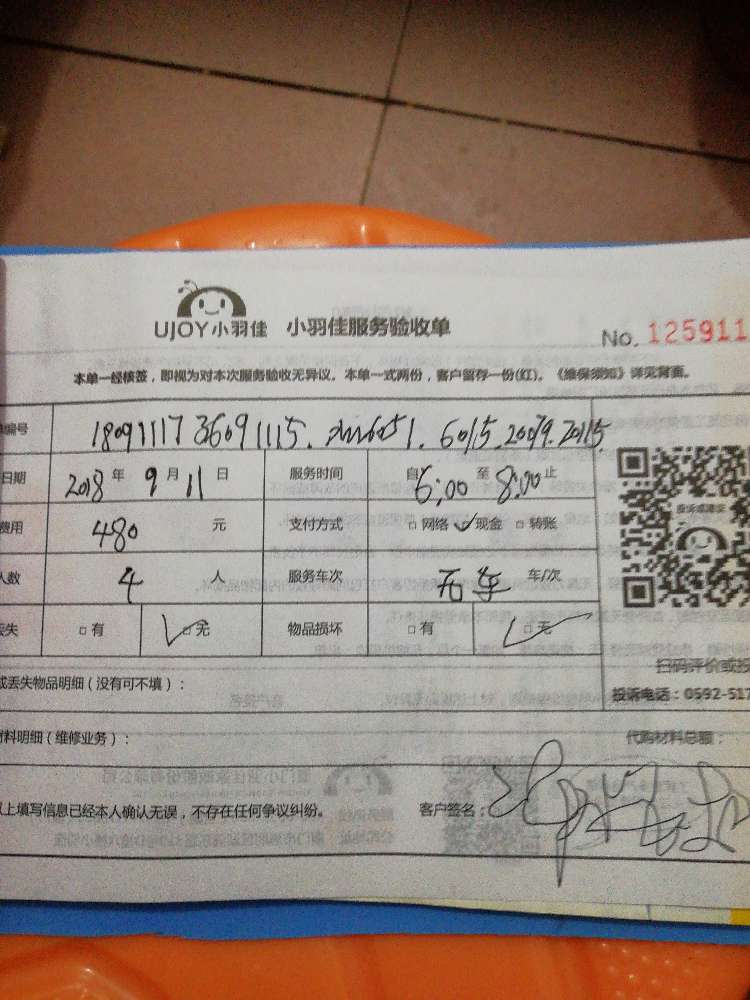 UJOY小羽佳 小羽佳服务验收单
No. 125911
本单一经核签，即视为对本次服务验收无异议。本单一式两份，客户留存一份(红)。《维保须知》详见背面。
编号
日期 2018 年 9 月 11 日 服务时间 自 6:00 至 8:00 止
费用 480 元 支付方式 □ 网络 ✓ 现金 □ 转账
人数 4 人 服务车次 无车 车/次
丢失 □ 有 ✓ □ 无 物品损坏 □ 有 ✓ □ 无
投诉或建议
扫码评价或投
或丢失物品明细（没有可不填）：
投诉电话：0592-517
材料明细（维修业务）： 代购材料总额：
以上填写信息已经本人确认无误，不存在任何争议纠纷。 客户签名：